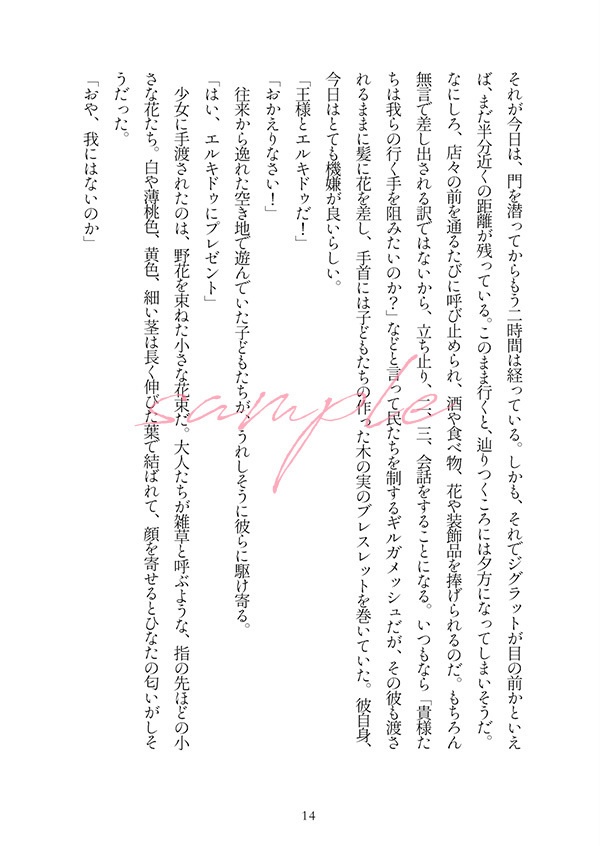 それが今日は、門を潜ってからもう二時間は経っている。しかも、それでジグラットが目の前かといえ
ば、まだ半分近くの距離が残っている。このまま行くと、辿りつくころには夕方になってしまいそうだ。
なにしろ、店々の前を通るたびに呼び止められ、酒や食べ物、花や装飾品を捧げられるのだ。もちろん
無言で差し出される訳ではないから、立ち止り、二、三、会話をすることになる。いつもなら「貴様た
ちは我らの行く手を阻みたいのか？」などと言って民たちを制するギルガメッシュだが、その彼も渡さ
れるままに髪に花を差し、手首には子どもたちの作った木の実のブレスレットを巻いていた。彼自身、
今日はとても機嫌が良いらしい。
「王様とエルキドゥだ！」
「おかえりなさい！」
往来から逸れた空き地で遊んでいた子どもたちが、うれしそうに彼らに駆け寄る。
「はい、エルキドゥにプレゼント」
少女に手渡されたのは、野花を束ねた小さな花束だ。大人たちが雑草と呼ぶような、指の先ほどの小
さな花たち。白や薄桃色、黄色、細い茎は長く伸びた葉で結ばれて、顔を寄せるとひなたの匂いがしそ
うだった。
「おや、我にはないのか」
sample
14